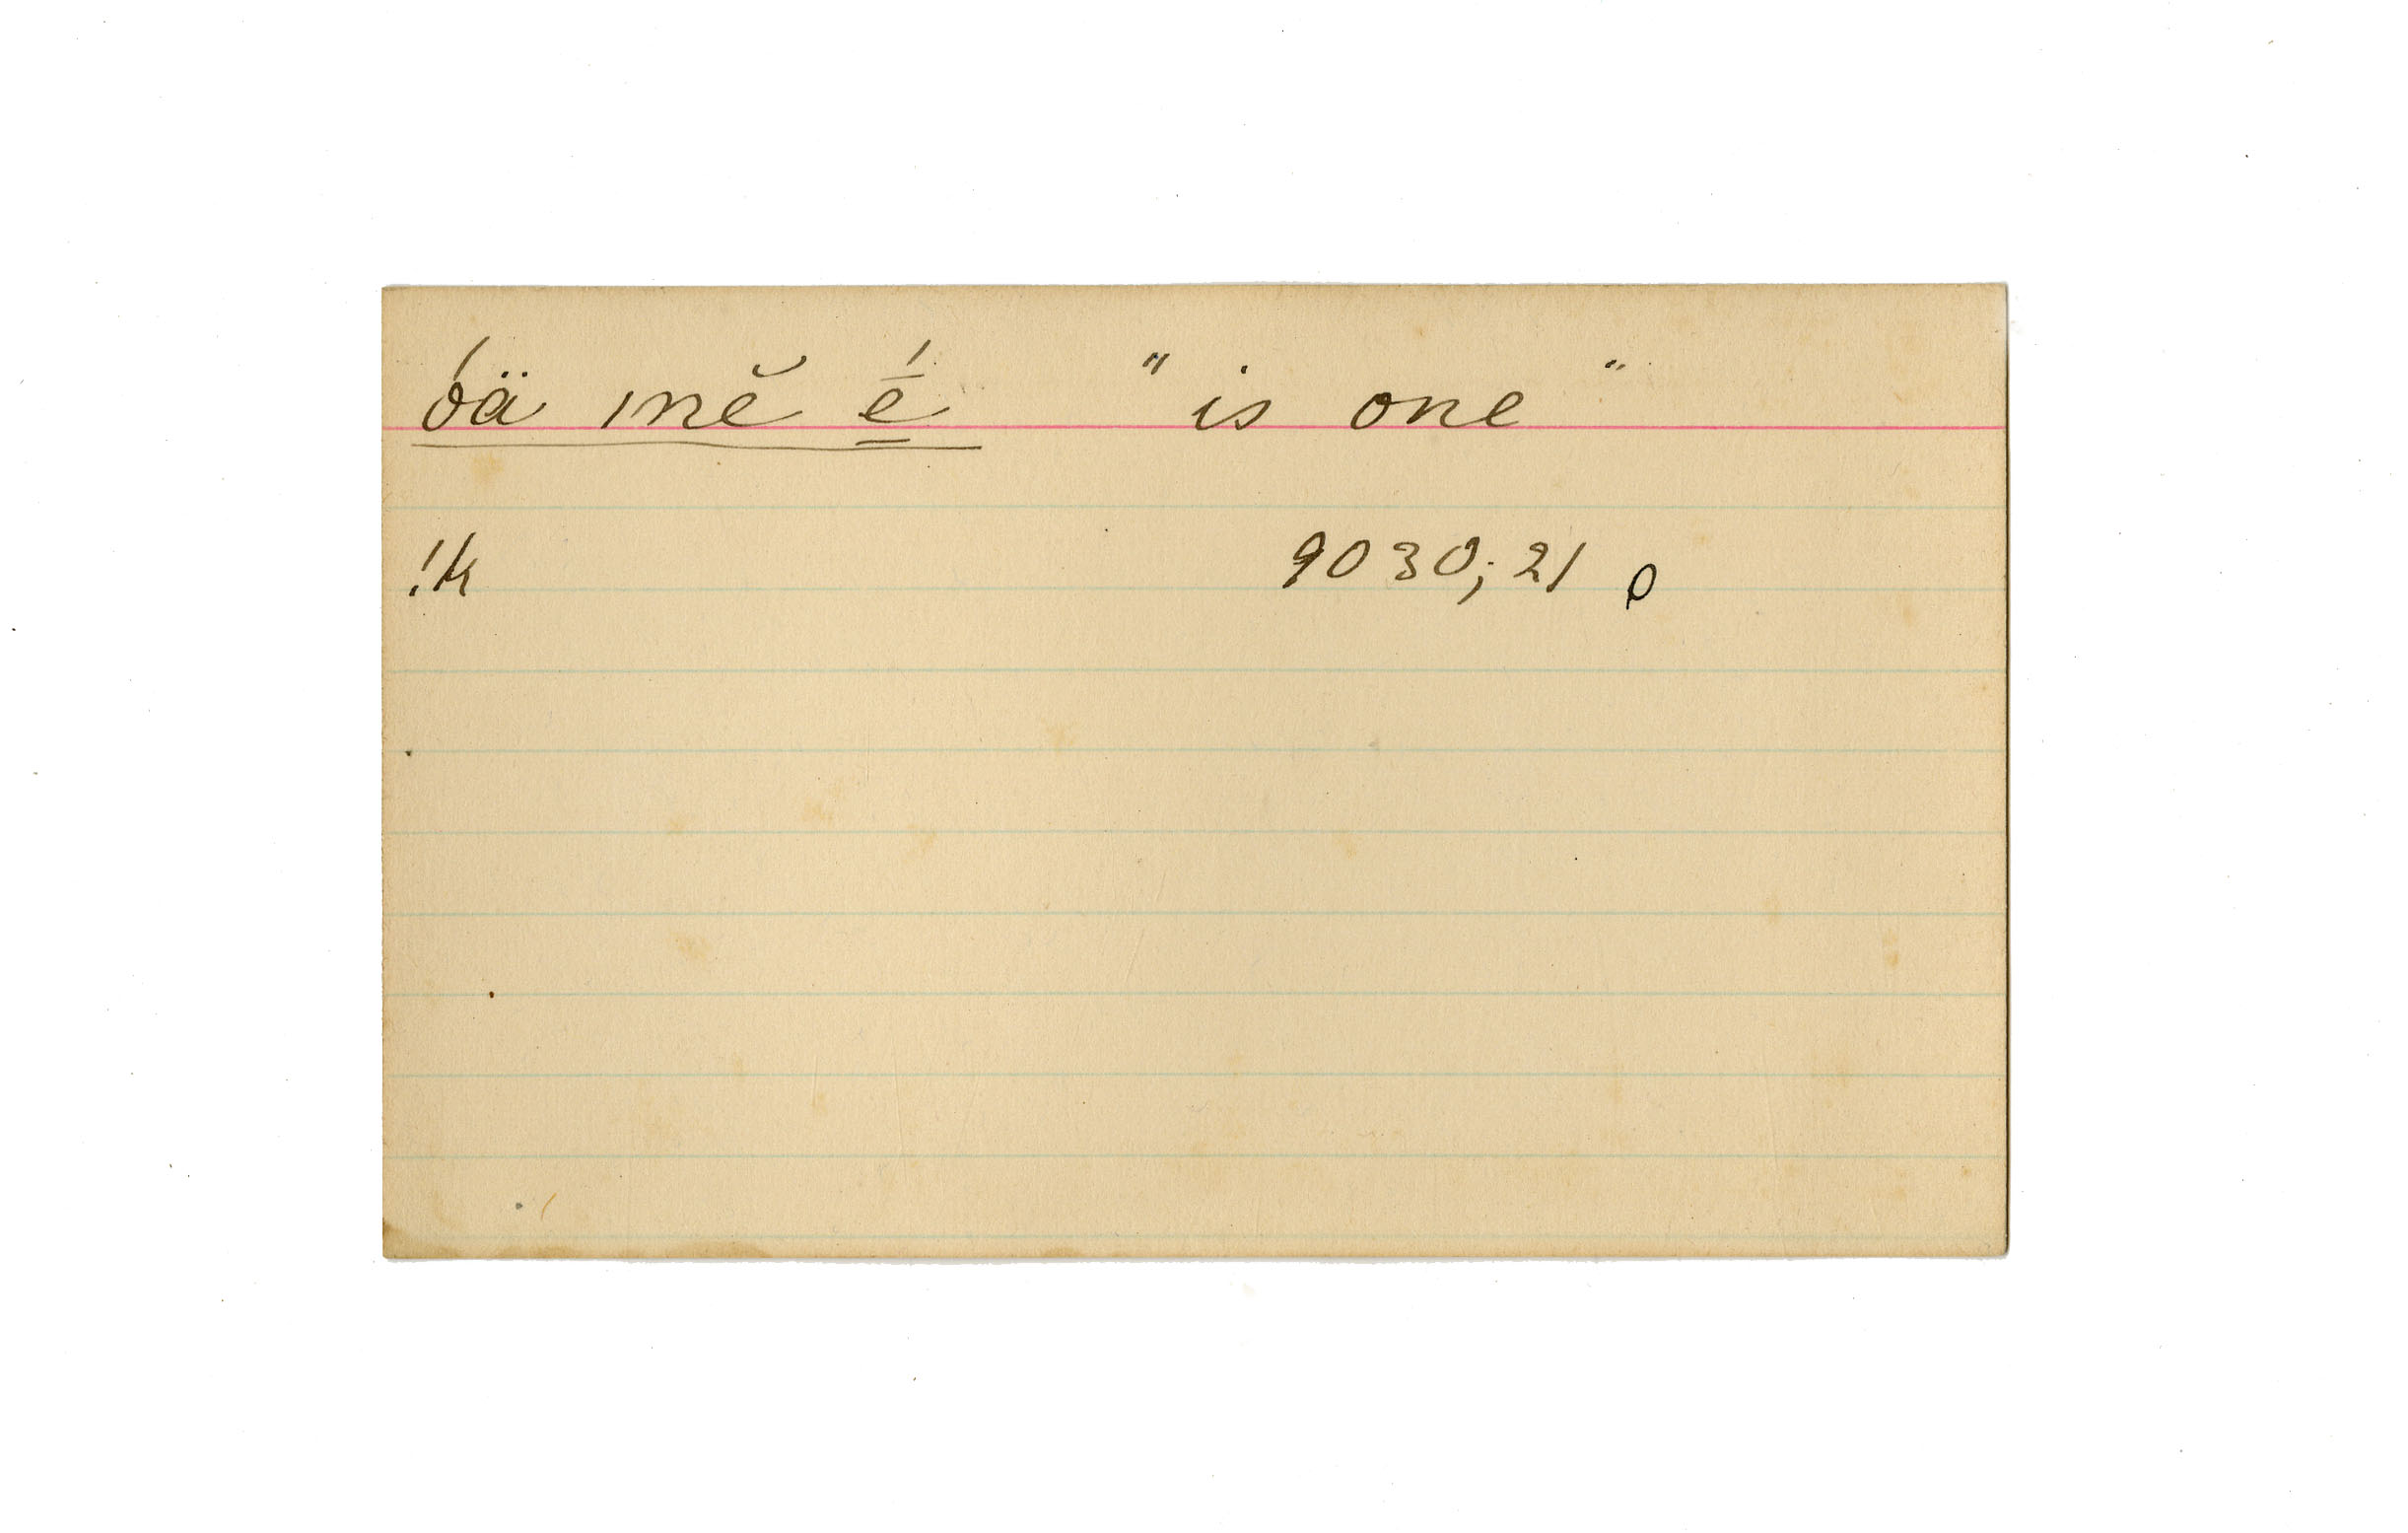 óä mĕ ḗ̱ " is one "
!k 9030; 21 ρ